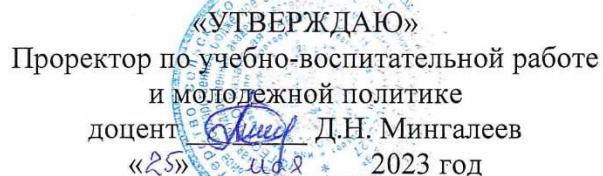 «УТВЕРЖДАЮ»
Проректор по учебно-воспитательной работе
и молодежной политике
доцент Д.Н. Мингалеев
«25» мая 2023 год